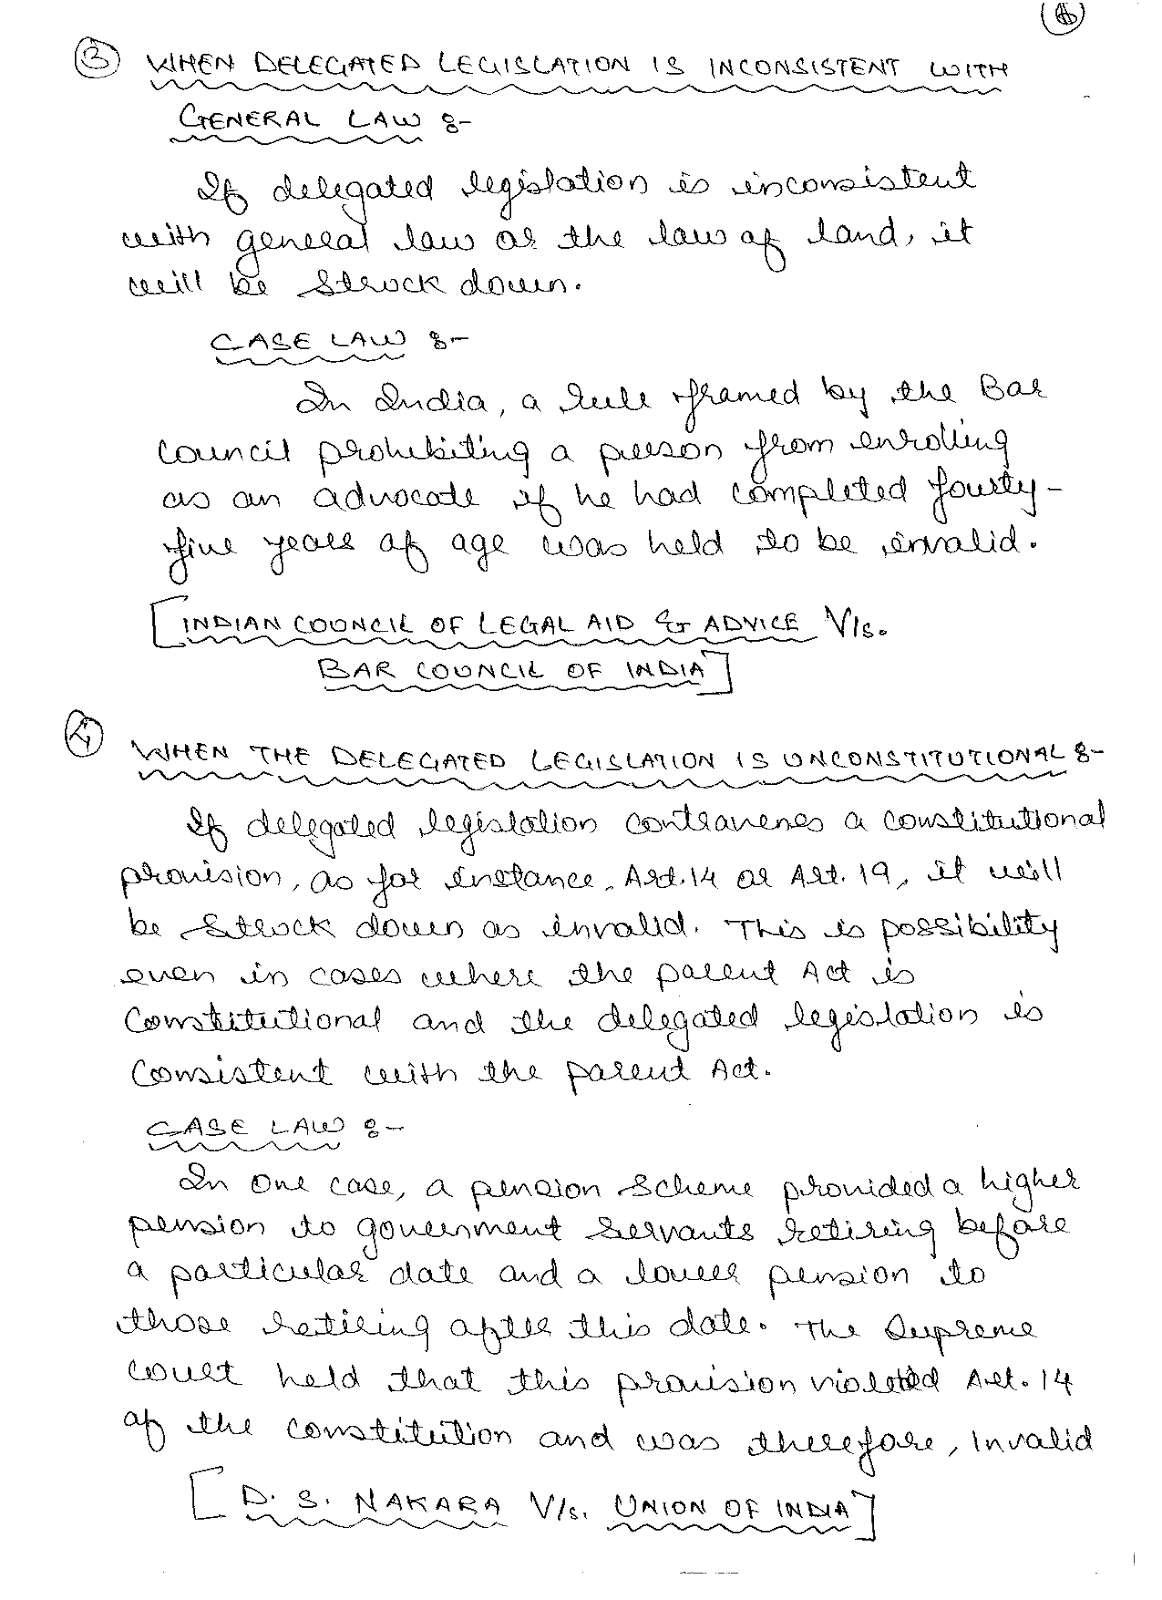 ③ WHEN DELEGATED LEGISLATION IS INCONSISTENT WITH
GENERAL LAW :-
If delegated legislation is inconsistent
with general law or the law of land, it
will be struck down.
CASE LAW :-
In India, a rule framed by the Bar
Council prohibiting a person from enrolling
as an advocate if he had completed fourty-
five years of age was held to be invalid.
[INDIAN COUNCIL OF LEGAL AID & ADVICE V/s.
BAR COUNCIL OF INDIA]
④ WHEN THE DELEGATED LEGISLATION IS UNCONSTITUTIONAL :-
If delegated legislation contravenes a constitutional
provision, as for instance, Art.14 or Art. 19, it will
be struck down as invalid. This is possibility
even in cases where the parent Act is
Constitutional and the delegated legislation is
consistent with the parent Act.
CASE LAW :-
In one case, a pension scheme provided a higher
pension to government servants retiring before
a particular date and a lower pension to
those retiring after this date. The Supreme
Court held that this provision violated Art. 14
of the constitution and was therefore, Invalid
[D. S. NAKARA V/s. UNION OF INDIA]